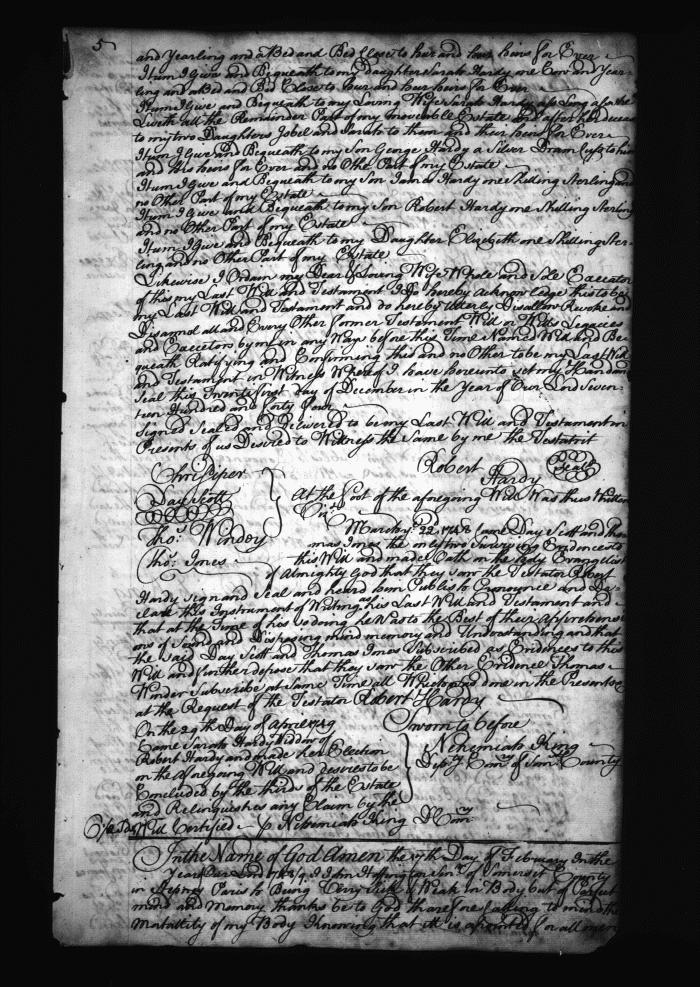 5
and Yearling and a Bed and Bed Close to hur and hur heirs for Ever
Itum I Give and Bequeath to my Daughter Sarah Hardy one Cow and Year=
ling and a Bed and Bed Close to hur and hur heirs for Ever
Itum I Give and Bequeath to my Loving Wife Sarah Hardy ass Long as she
Liveth all the Remainder Part of my moveable Estate and after her deceas
to my two Daughters Isbel and Sarah to them and their heirs for Ever
Itum I Give and Bequeath to my Son George Hardy a Silver Dram Cup to him
and his heirs for Ever and no Othe Part of my Estate
Itum I Give and Bequeath to my Son James Hardy one Shilling Sterling and
no Other Part of my Estate
Itum I Give and Bequeath to my Son Robert Hardy one Shilling Sterling
and no Other Part of my Estate
Itum I Give and Bequeath to my Daughter Elizebeth one Shilling Ster=
ling and no Other Part of my Estate
Likewise I Ordain my Dear & Loving Wife Whole and Sole Executor
of this my Last Will and Testament I do hereby Acknowledge this to be
my Last Will and Testament and do hereby Utterly Disallow Revoke and
Disannul all and Every Other former Testament Will or Wills Legacies
and Executors by me in any Ways before this Time Named Will and Be=
queath Ratifying and Confirming this and no Other to be my Last Will
and Testament in Witness Whereof I have hereunto set my Hand and
Seal this Twenty first Day of December in the Year of Our Lord Seven=
teen Hundred and forty four
Signed Sealed and Delivered to be my Last Will and Testament in
Presents of us Desired to Witness the Same by me the Testatrit
Robert Hardy Seal
Day Scott
Thos. Winder
Thos. Jones
At the foot of the aforegoing Will Was thus Written
March 22 1748 Came Day Scott and Tho
mas Jones the one two Surviving Evidences to
this Will and made Oath on the Holy Evangelist
of Almighty God that they saw the Testator Robert
Hardy Sign and Seal and heard him Publish Pronounce and De=
clare this Instrument of Writing as his Last Will and Testament and
that at the Time of his so doing he Was to the Best of their Apprehensi
ons of Sound and Disposing mind memory and Understanding and that
the said Day Scott and Thomas Jones Subscribed as Evidences to this
Will and further depose that they saw the Other Evidence Thomas
Winder Subscribe at Same Time all Which was done in the Presents &
at the Request of the Testator Robert Hardy
On the 29th Day of April 1749
Came Sarah Hardy Widdow of
Robert Hardy and made her Election
on the Aforegoing Will and desires to be
Concluded by the thirds of the Estate
and Relinquishes any Claim by the
Will Certified p Nehemiah King D Comry
Sworn to before
Nehemiah King
Depty Comry of Somt County
In the Name of God Amen the 17th Day of February In the
Year Our Lord I John of Somerset County
in Stepney Parish Being Very Sick & Weak in Body but of Perfect
mind and Memory thanks be to God tharefore Calling to mind the
Mortallity of my Body Knowing that it is apointed for all men